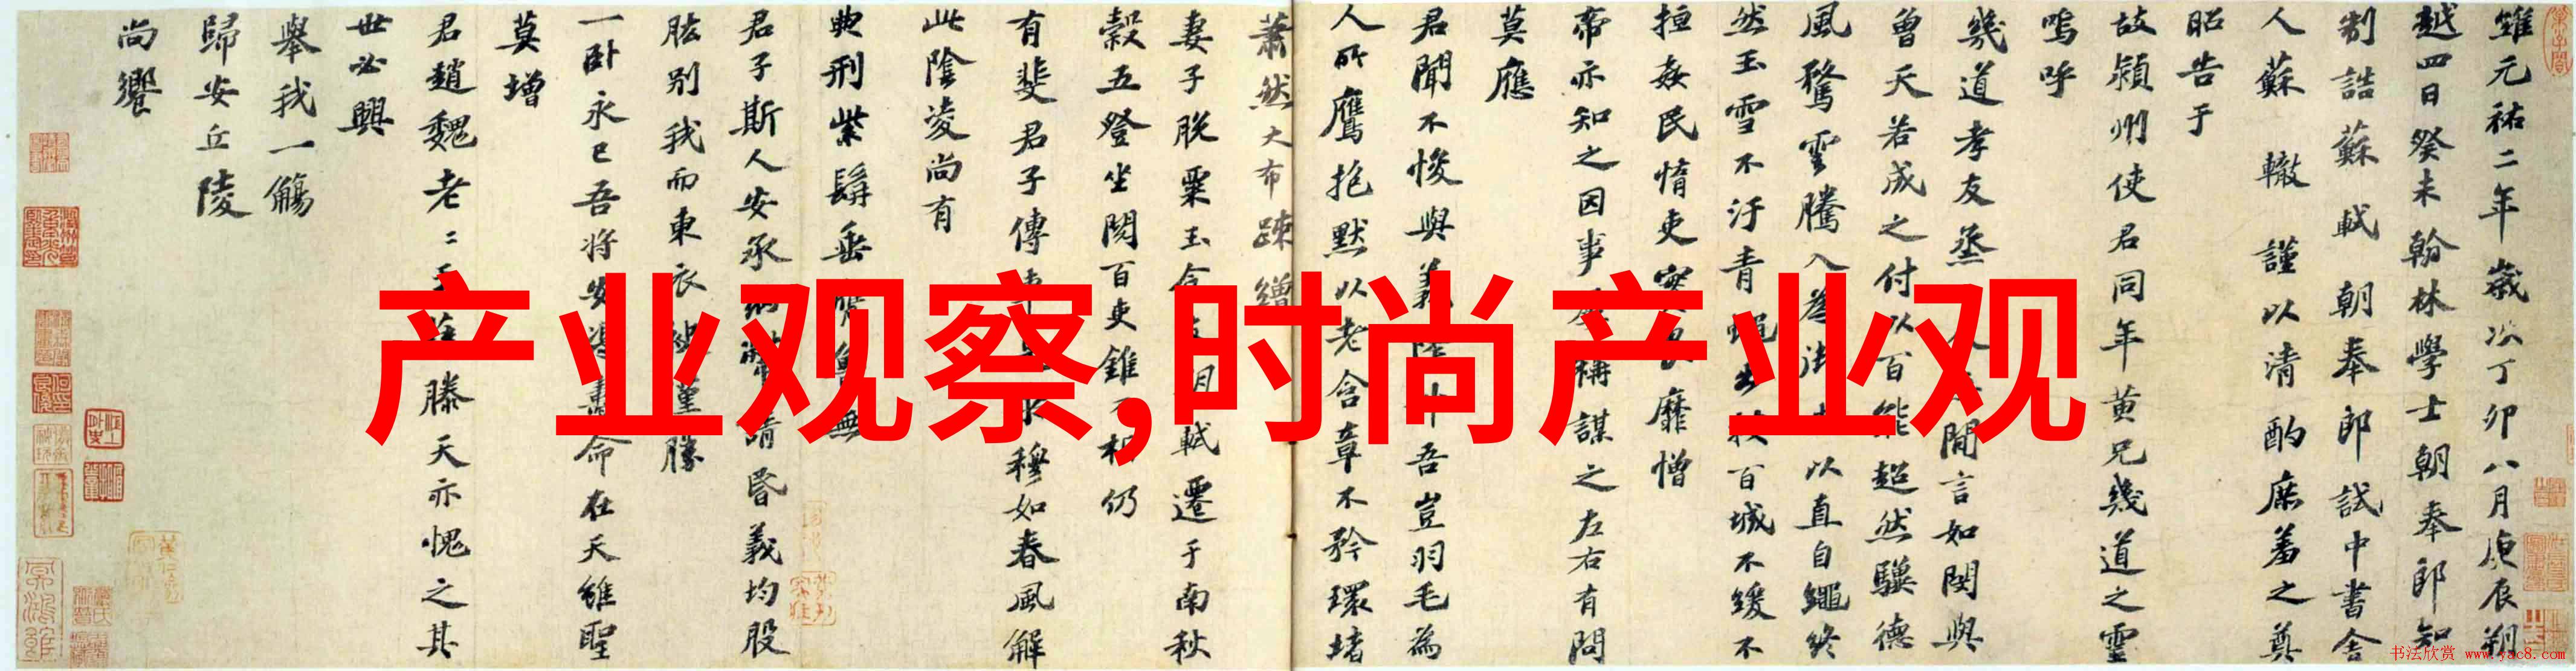 維元祐二年歲次丁卯八月庚辰朔
越四日癸未翰林學士朝奉郎知
制誥蘇軾朝奉郎試中書舍
人蘇轍謹以清酌庶羞之奠
昭告于
故潁州使君同年黄兄幾道之靈
嗚呼
幾道孝友烝烝人無閒言如閔與
曾天若成之付以百能超然驥德
風騖雲騰入為御史以直自繩終
然玉雪不汙青蠅出牧百城不緩不
拒姦民惰吏實畏靡憎
帝亦知之因事屢稱謀之左右有問
莫應
君聞不悛與義降升吾豈羽毛為
人所鷹抱默以老含章不矜環堵
蕭然大布疎繒
妻子脱粟玉食友朋軾遷于南秋
穀五登坐閱百吏錐刀相仍
有斐君子傳車是乘穆如春風解
此陰凌尚有
典刑紫髯垂膺魯無
君子斯人安承納幣請昏義均股
肱别我而東衣袂僅勝
一卧永已吾將安馮壽命在天雖聖
莫增
君趙魏老老于薛滕天亦愧之其
世必興
舉我一觴
歸安丘陵
尚饗
产业观察,时尚产业观
书法欣赏 www.yac8.com